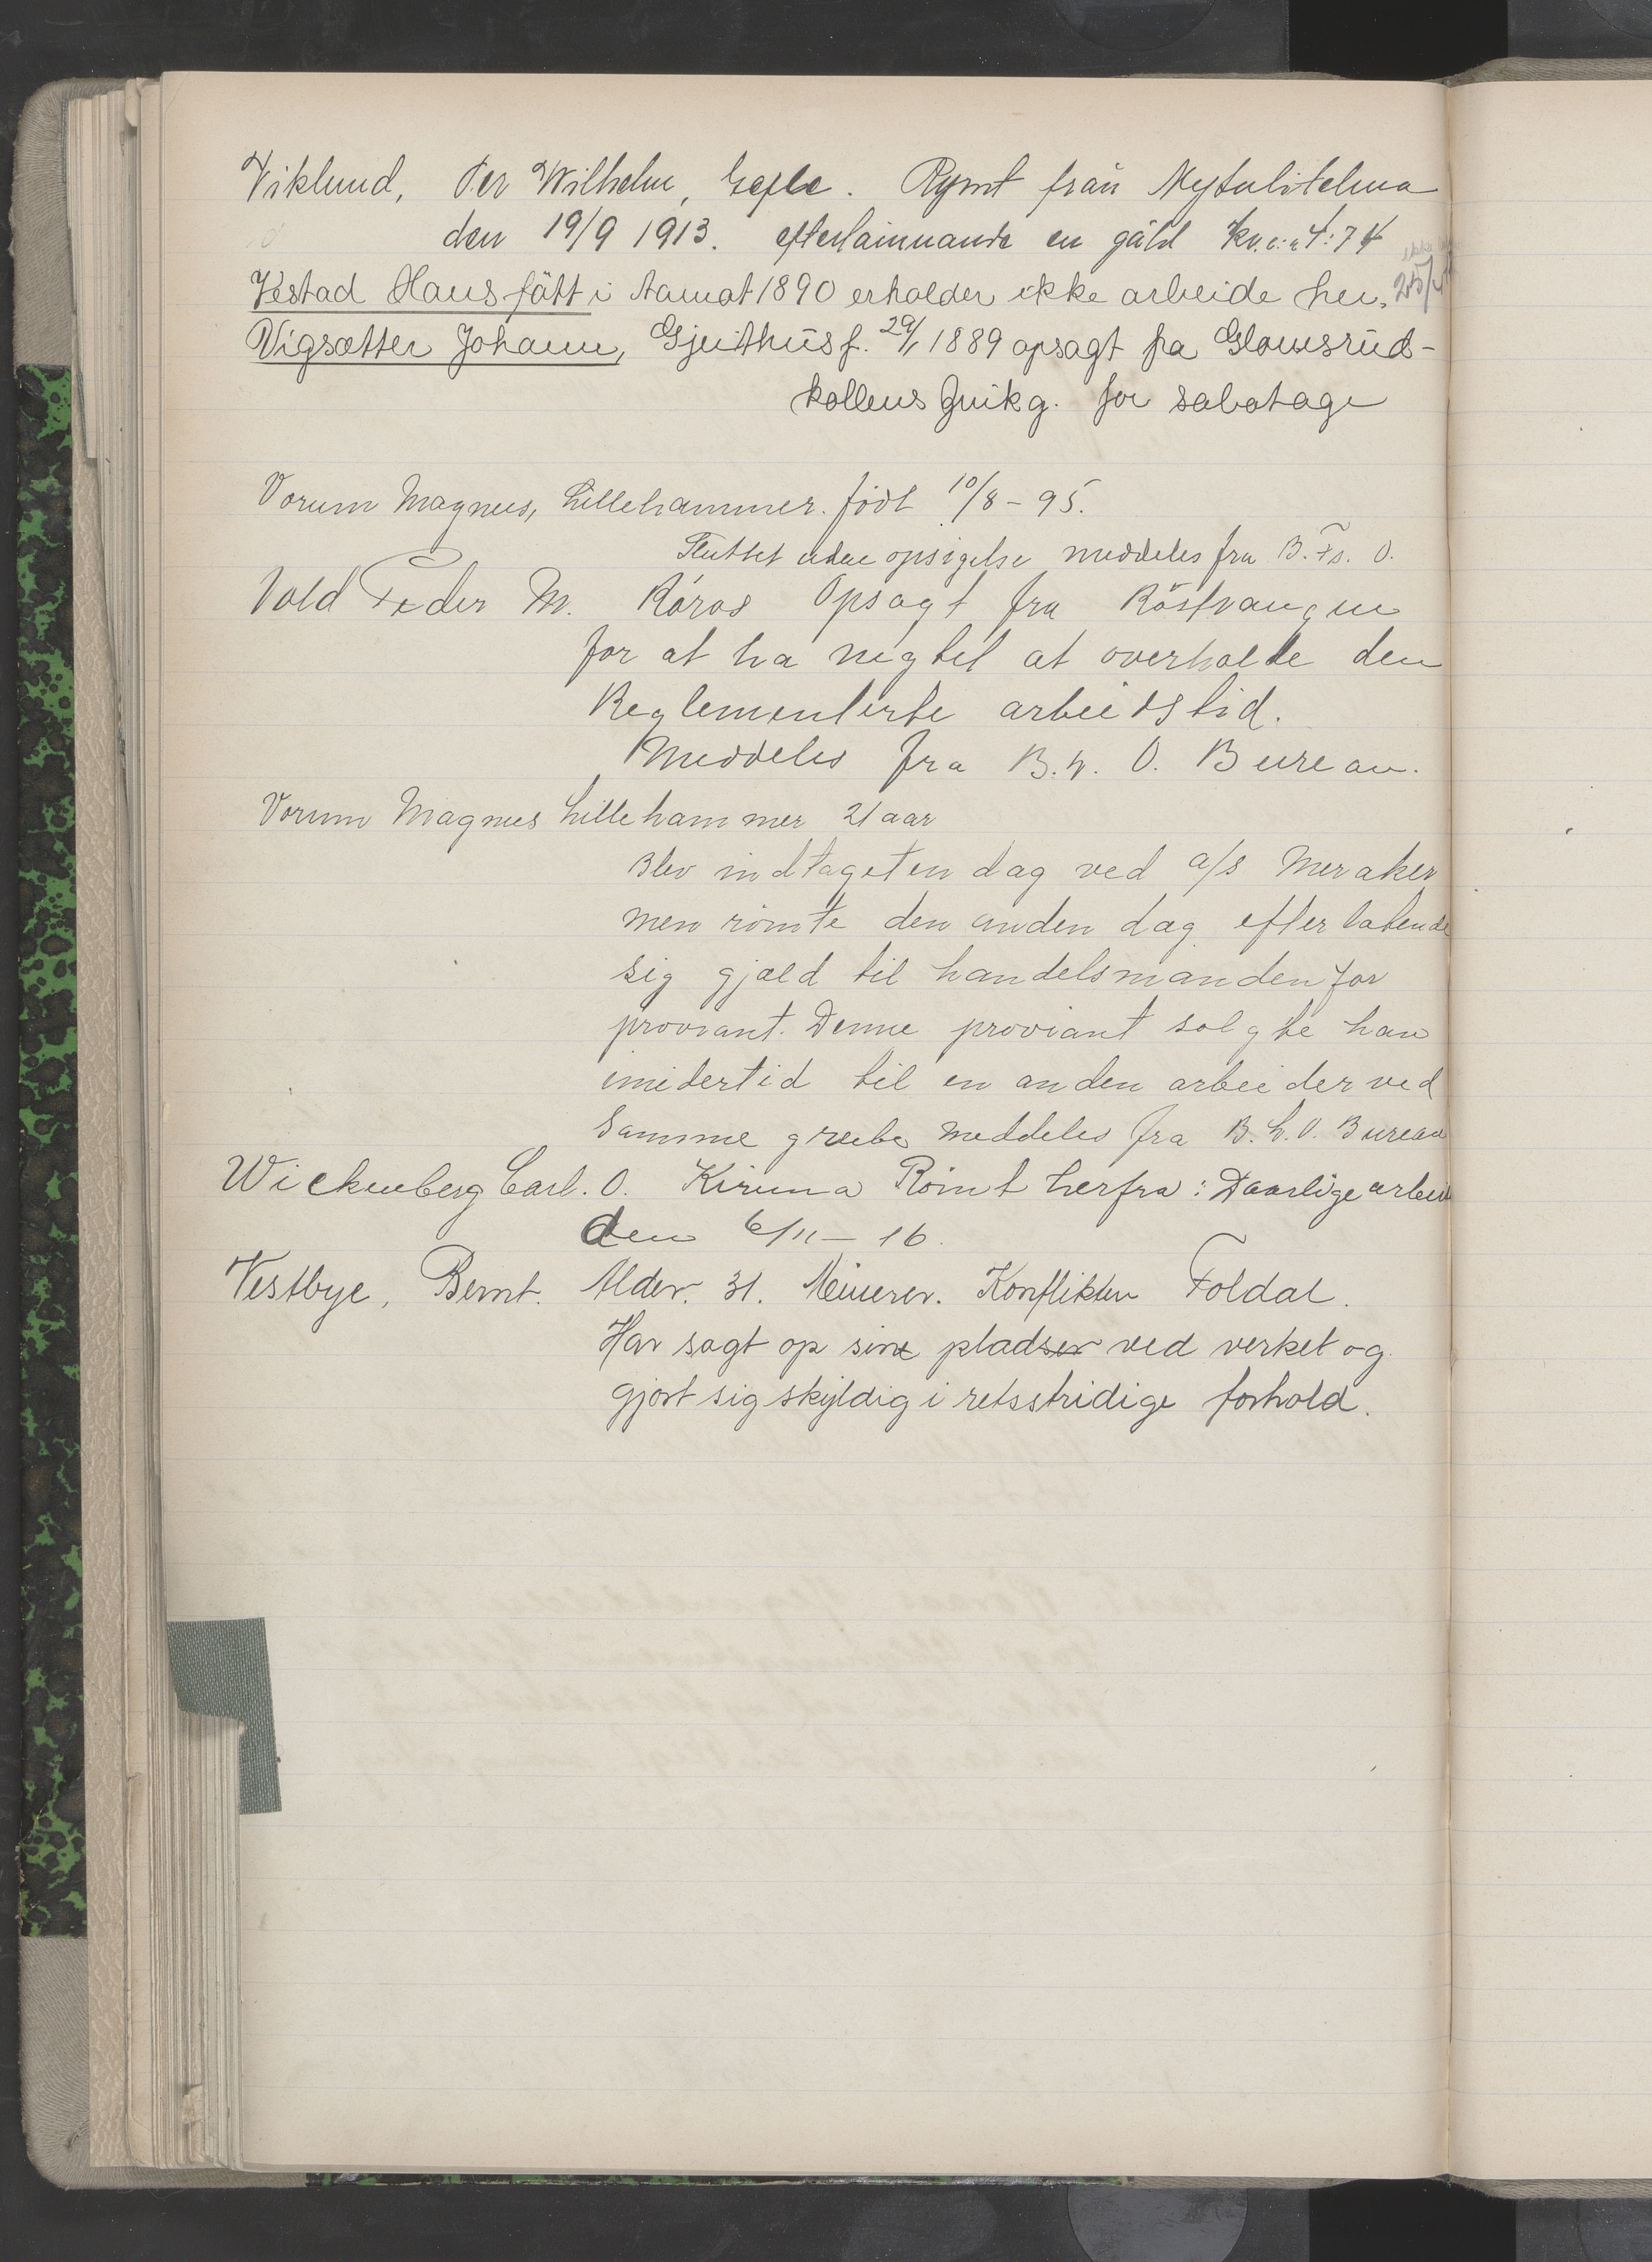 Viklund, Per Wilhelm, Gefle. Rymt från
den 19/9 1913. efterlämnande en gäld Kr. 4:74
Vestad Hans fått i Aamot 1890 erholder ikke arbeide her.
Vigsætter Johann, Gjeithus f. 29/1 1889 opsagt fra Glomsrud-
kollens for sabotage
Vorum Magnus, Lillehammer. født 10/8-95.
Sluttet uden opsigelse meddeles fra B. Fs. O.
Vold Peder M. Röros Opsagt fra Röstvangen
for at ha negtet at overholde den
Reglementerte arbeidstid.
Meddeles fra B. h. O. Bureau.
Vorum Magnus Lillehammer 21 aar
Blev indtaget en dag ved a/s Meraker
men römte den anden dag efterlatende
sig gjæld til handelsmanden for
proviant. Denne proviant solgte han
imidertid til en anden arbeider ved
samme grube meddeles fra B. h. O. Bureau
Wickenberg Carl. O. Kiruna Römt herfra: Daarlige arbeid
den 6/11-16.
Vestbye, Bernt. Alder. 31. Minerer. Konflikten Foldal.
Har sagt op sine pladser ved verket og
gjort sig skyldig i retsstridige forhold.